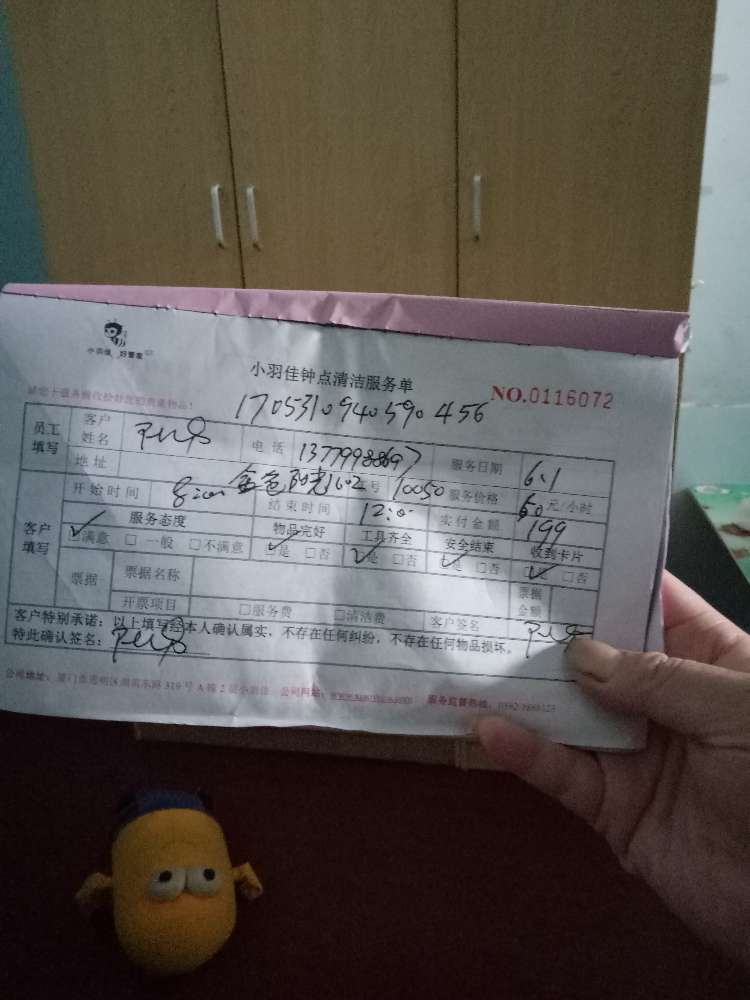 小羽佳 好管家
小羽佳钟点清洁服务单
NO.0116072
1705310940590456
员工填写 客户姓名 电话 服务日期 6.1
地址 金色阳光1602 号 10050 服务价格 60元/小时
开始时间 结束时间 12:00 实付金额 199
客户填写 服务态度 物品完好 工具齐全 安全结束 收到卡片
☑满意 □一般 □不满意 ☑是 □否 ☑是 □否 ☑是 □否 ☑是 □否
票据 票据名称 票据金额
开票项目 □服务费 □清洁费 客户签名
客户特别承诺：以上填写经本人确认属实，不存在任何纠纷，不存在任何物品损坏。
特此确认签名：
公司地址：厦门市思明区湖滨东路319号A栋2层小羽佳 公司网站： 服务监督热线：